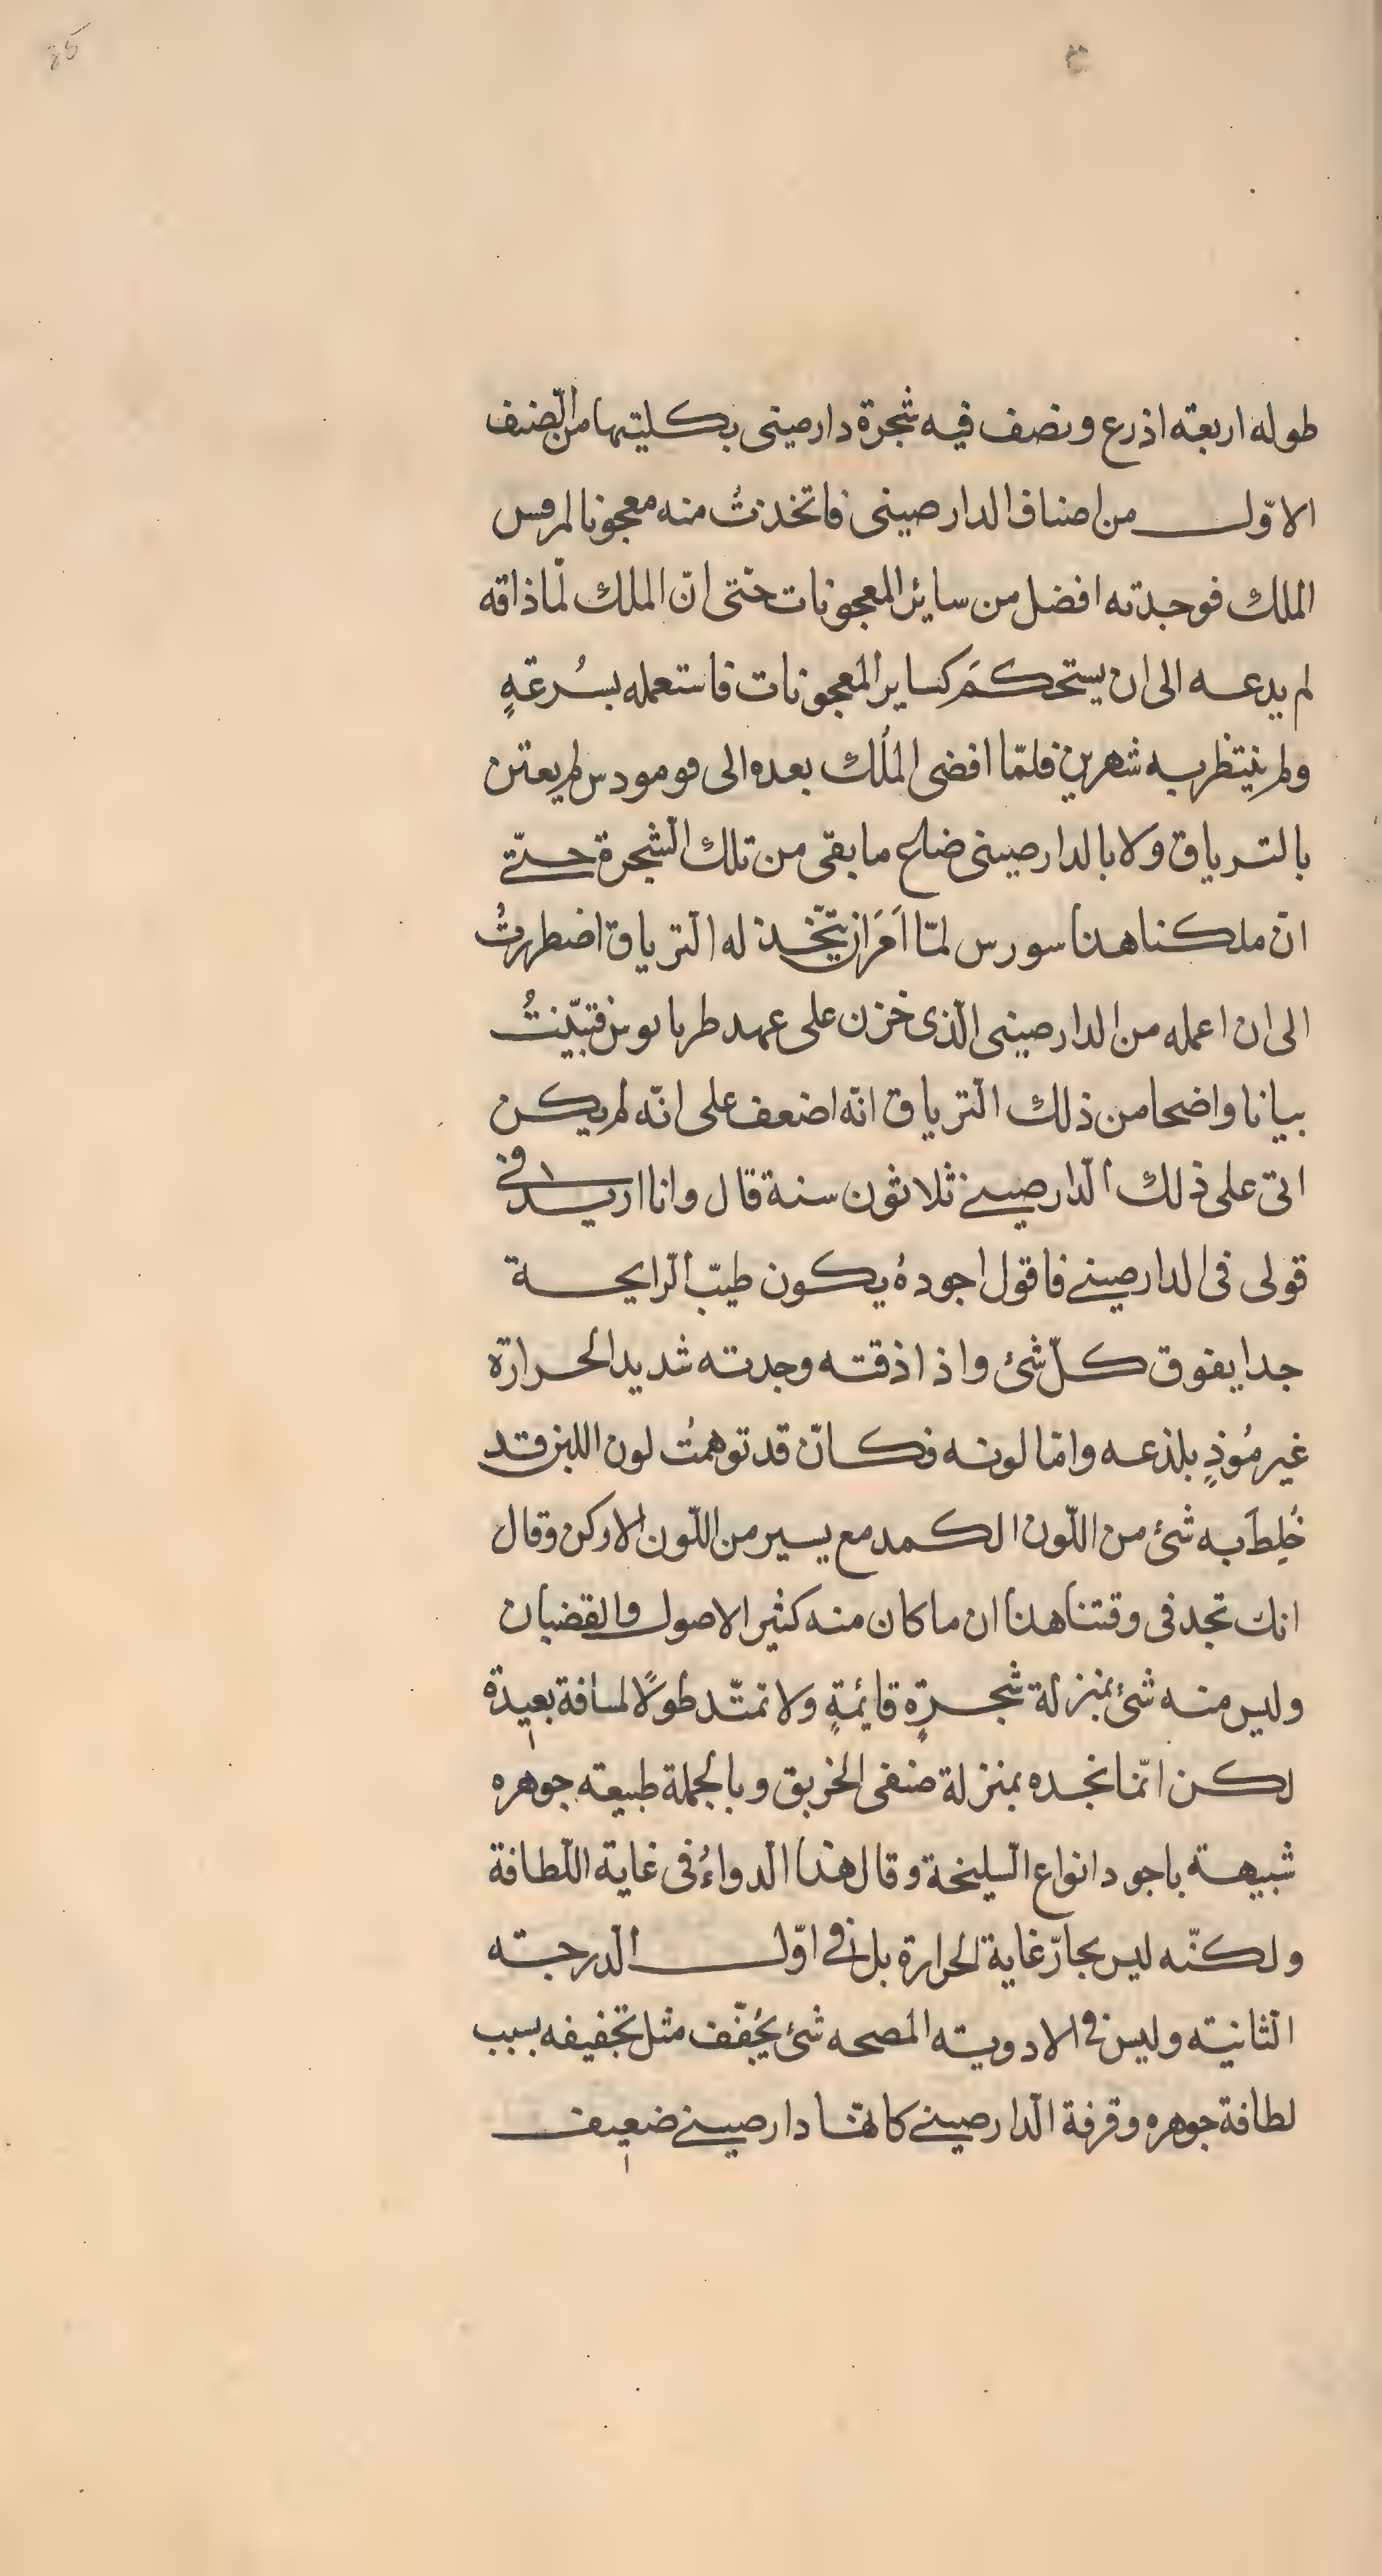 طوله اربعة اذرع ونصف فيه شجرة دارصينى بكليتها من الصنف
الاوّل من اصناف الدارصينى فاتخذتُ منه معجونا لمرقس
الملك فوجدته افضل من سائر المعجونات حتى انّ الملك لمّا ذاقه
لم يدعه الى ان يستحكمَ كساير المعجونات فاستعمله بسُرعةٍ
ولم ينتظر به شهرين فلمّا افضى المُلك بعده الى قومودس لم يعتن
بالترياق ولا بالدارصينى ضاع ما بقى من تلك الشجرة حتّى
انّ ملكنا هذا سورس لمّا اَمَرَ ان يتّخذ له الترياق اضطررتُ
الى ان اعمله من الدارصينى الّذى خزن على عهد طريانوس فتبيّنتُ
بيانا واضحا من ذلك الترياق انّه اضعف على انّه لم يكن
اتى على ذلك الدارصينى ثلاثون سنة قال وانا ازيد فى
قولى فى الدارصينى فاقول اجودهُ يكون طيّب الرّايحة
جدا يفوق كلّ شئ واذا ذقته وجدته شديد الحرارة
غير مُوذٍ بلذعه وامّا لونه فكانّ قد توهمتُ لون اللبن قد
خُلِطَ به شئ من اللّون الكمد مع يسير من اللّون الادكن وقال
انك تجد فى وقتنا هذا ان ما كان منه كثير الاصول والقضبان
وليس منه شئ بمنزلة شجرةٍ قائمةٍ ولا تمتّد طولًا لمسافة بعيدة
لكن انّما نجده بمنزلة صنفى الخربق وبالجملة طبيعته جوهره
شبيهة باجود انواع السليخة وقال هذا الدواءُ فى غاية اللّطافة
ولكنّه ليس بحارّ غاية الحرارة بل فى اوّل الدرجة
الثانية وليس فى الادوية المصحه شئ يُجفّف مثل تجفيفه بسبب
لطافة جوهره وقرفة الدارصينى كانّها دارصينى ضعيف